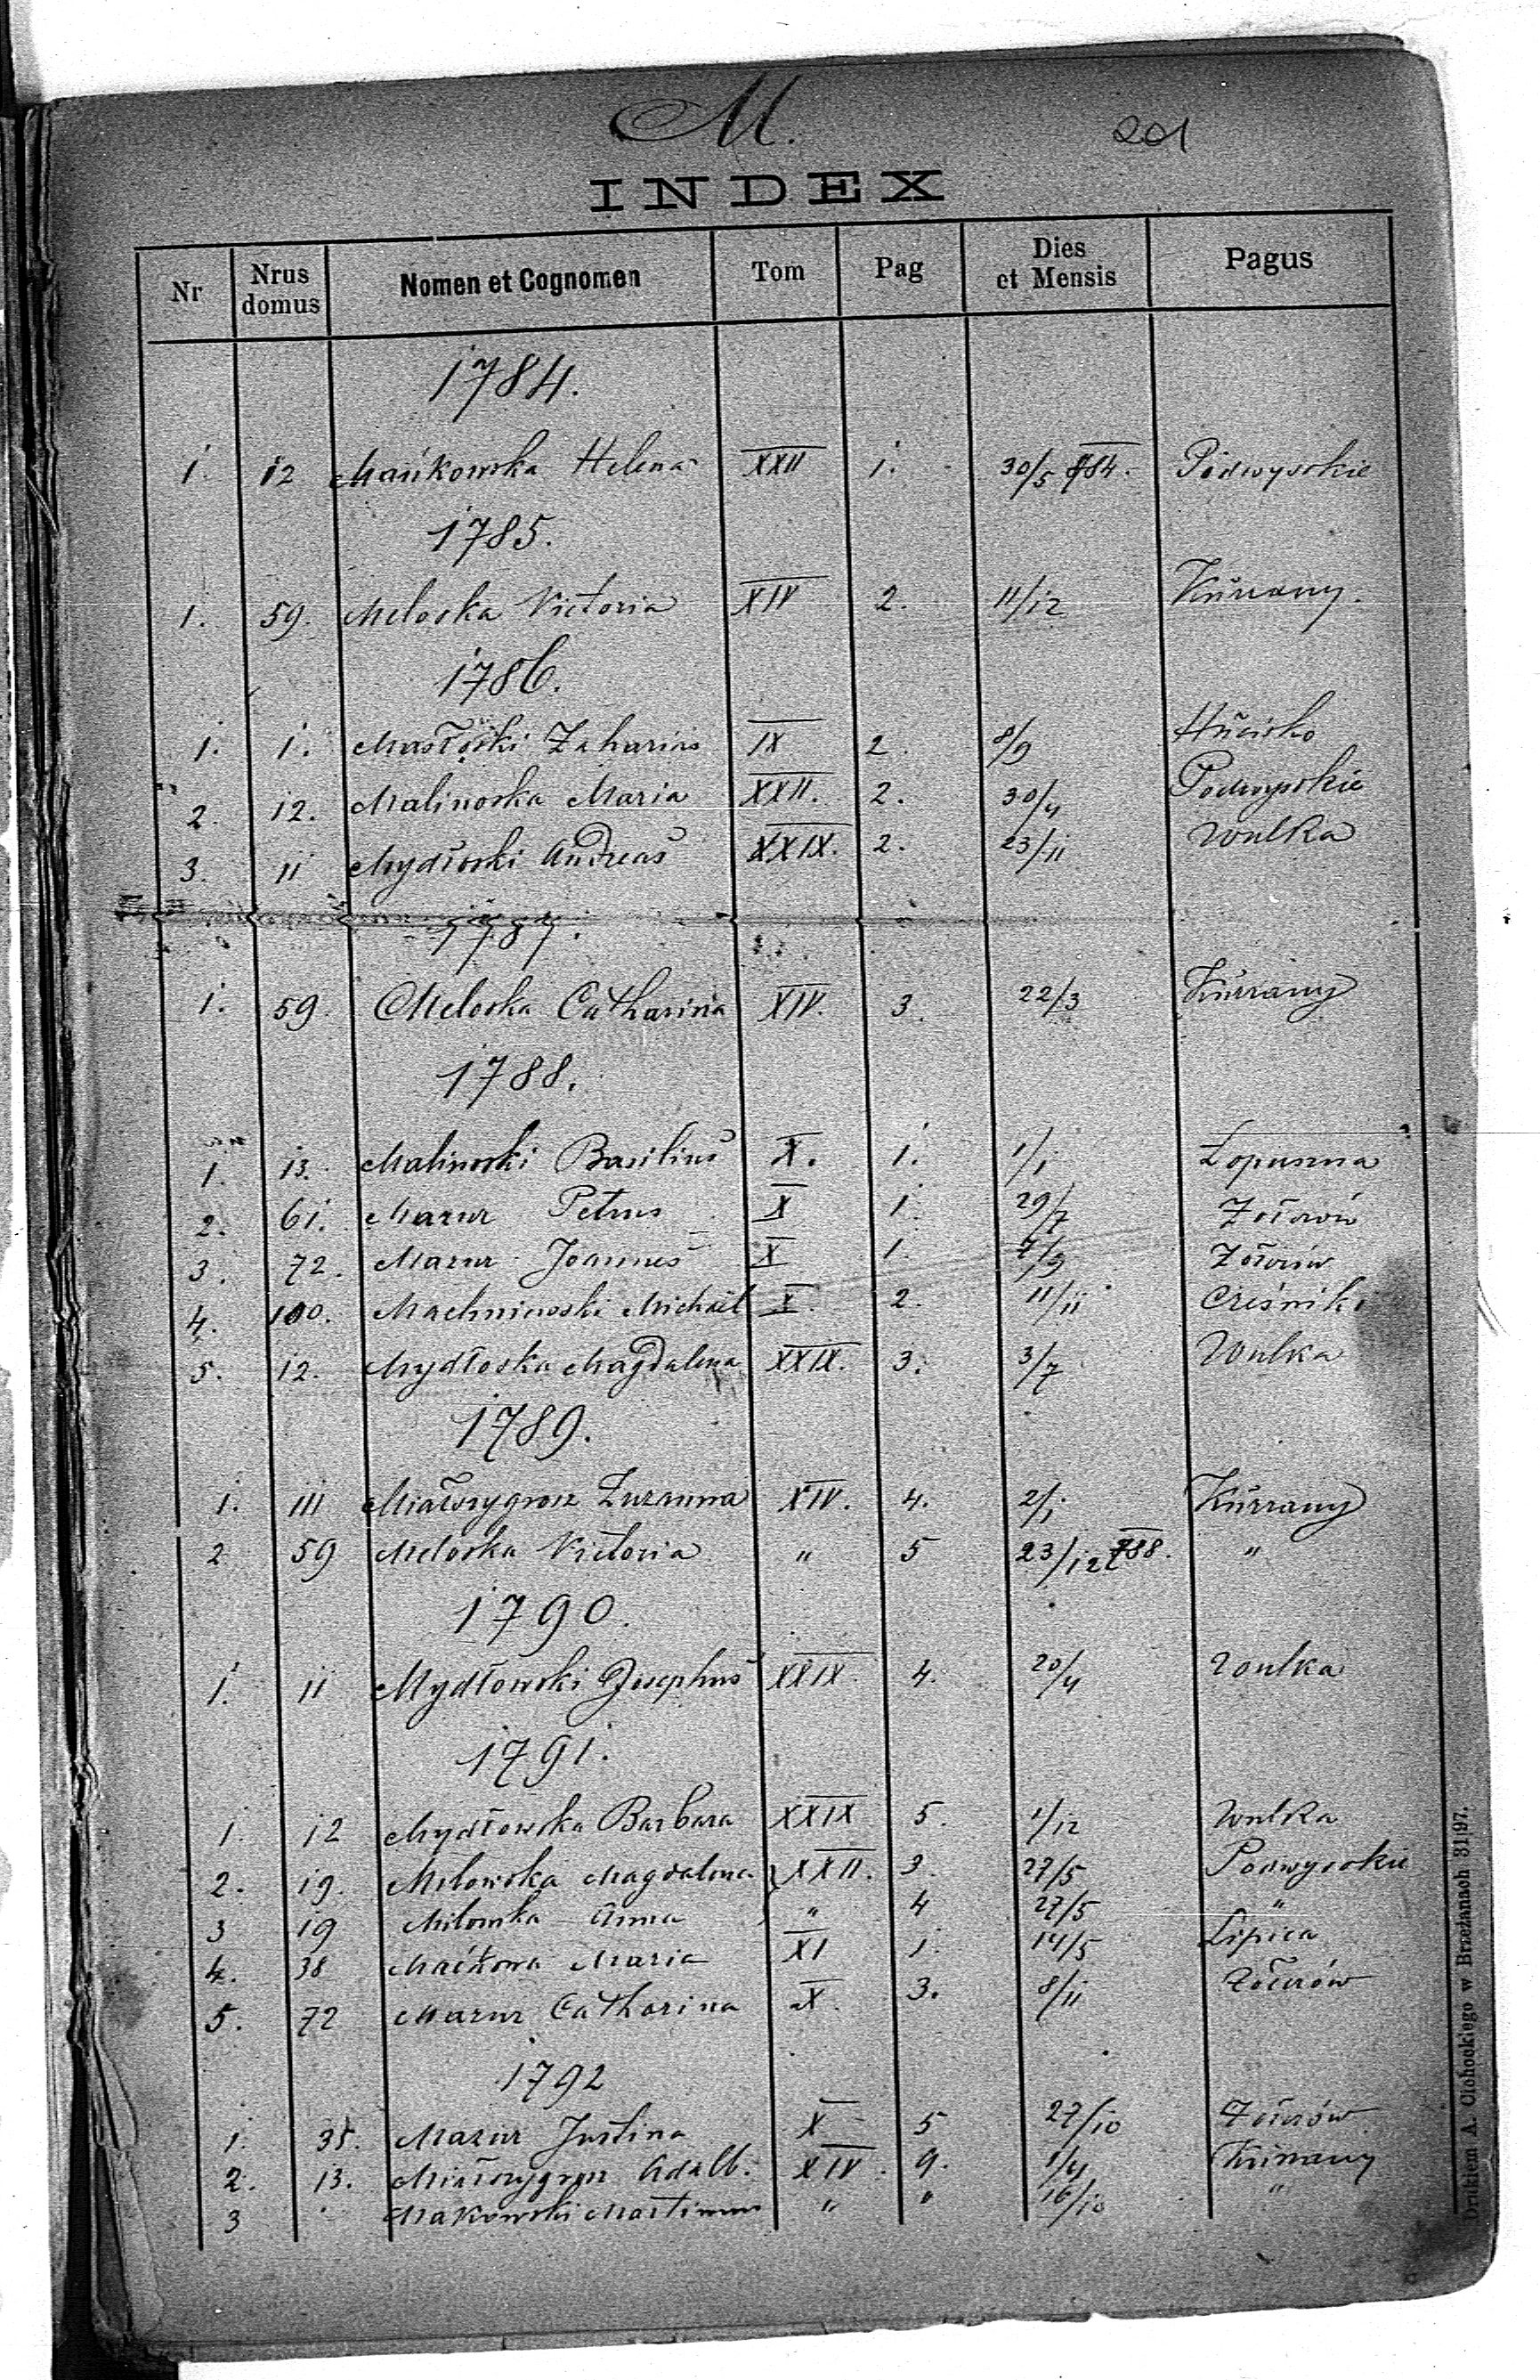 M.
201
INDEX
Nr Nrus domus Nomen et Cognomen Tom Pag Dies et Mensis Pagus
1784.
1. 12 Mańkowska Helena XXII 1. 30/5 784. Podwysokie
1785.
1. 59. Meloska Victoria XIV 2. 11/12 Kurzany.
1786.
1. 1. Masłoski Zaharias IX 2. 8/9 Hucisko
2. 12. Malinoska Maria XXII. 2. 30/4 Podwysokie
3. 11 Mydłoski Andreas XXIX. 2. 23/11 Wulka
1787.
1. 59. Meloska Catharina XIV. 3. 22/3 Kurzany
1788.
1. 13. Malinoski Basilius X. 1. 1/1 Łopuszna
2. 61. Mazur Petrus X 1. 29/7 Żołnów
3. 72. Mazur Joannes X 1. 7/9 Żołnów
4. 100. Machniewski Michael X. 2. 11/11 Cześniki
5. 12. Mydłoska Magdalena XXIX. 3. 3/7 Wulka
1789.
1. 111 Zuzanna XIV. 4. 2/1 Kurzany
2 59 Meloska Victoria " 5 23/12 788. "
1790.
1. 11 Mydłowski Josephus XXIX. 4. 20/4 Wulka
1791.
1. 12 Mydłowska Barbara XXIX 5. 1/12 Wulka
2. 19. Milowska Magdalena XXII. 3. 27/5 Podwysokie
3 19 Milowska Anna " 4 27/5 "
4. 38 Maria XI 1. 14/5 Lipica
5. 72 Mazur Catharina X. 3. 8/11 Żołnów
1792
1. 35. Mazur Justina X 5 27/10 Żołnów
2. 13. Adalb. XIV. 9. 1/4 Kurzany
3 Makowski Martinus " " 16/10 "
Drukiem A. Olohockiego w Brzeżanach 31|97.